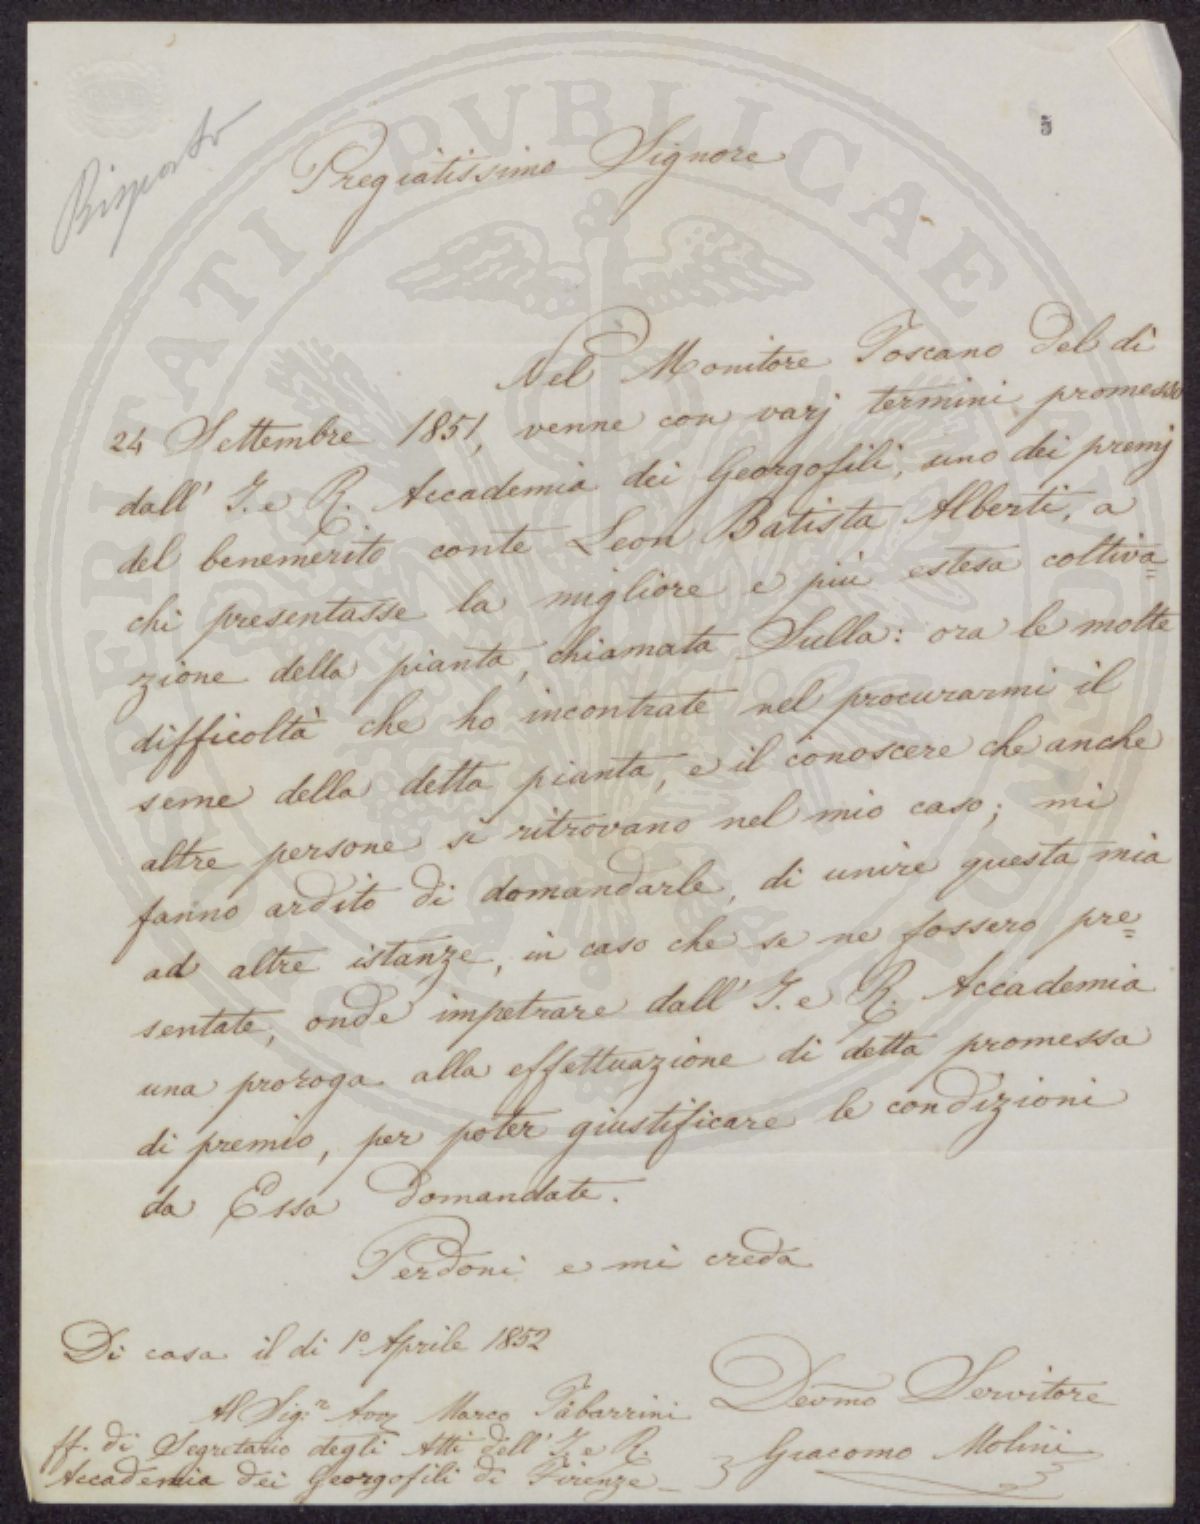 5
Risposto
Pregiatissimo Signore
Nel Monitore Toscano del di
24 Settembre 1851, venne con varj termini promesso
dall' I. e R. Accademia dei Georgofili, uno dei premj
del benemerito conte Leon Batista Alberti, a
chi presentasse la migliore e più estesa coltiva=
zione della pianta, chiamata Sulla: ora le molte
difficoltà che ho incontrate nel procurarmi il
seme della detta pianta, e il conoscere che anche
altre persone si ritrovano nel mio caso; mi
fanno ardito di domandarle, di unire questa mia
ad altre istanze, in caso che se ne fossero pre=
sentate, onde impetrare dall' I. e R. Accademia
una proroga alla effettuazione di detta promessa
di premio, per poter giustificare le condizioni
da Essa domandate.
Perdoni e mi creda
Di casa il di 1º Aprile 1852
Devmo Servitore
Giacomo Molini
Al Sig.r Avv Marco Tabarrini
ff. di Segretario degli Atti dell' I. e R.
Accademia dei Georgofili di Firenze
PVBLICAE